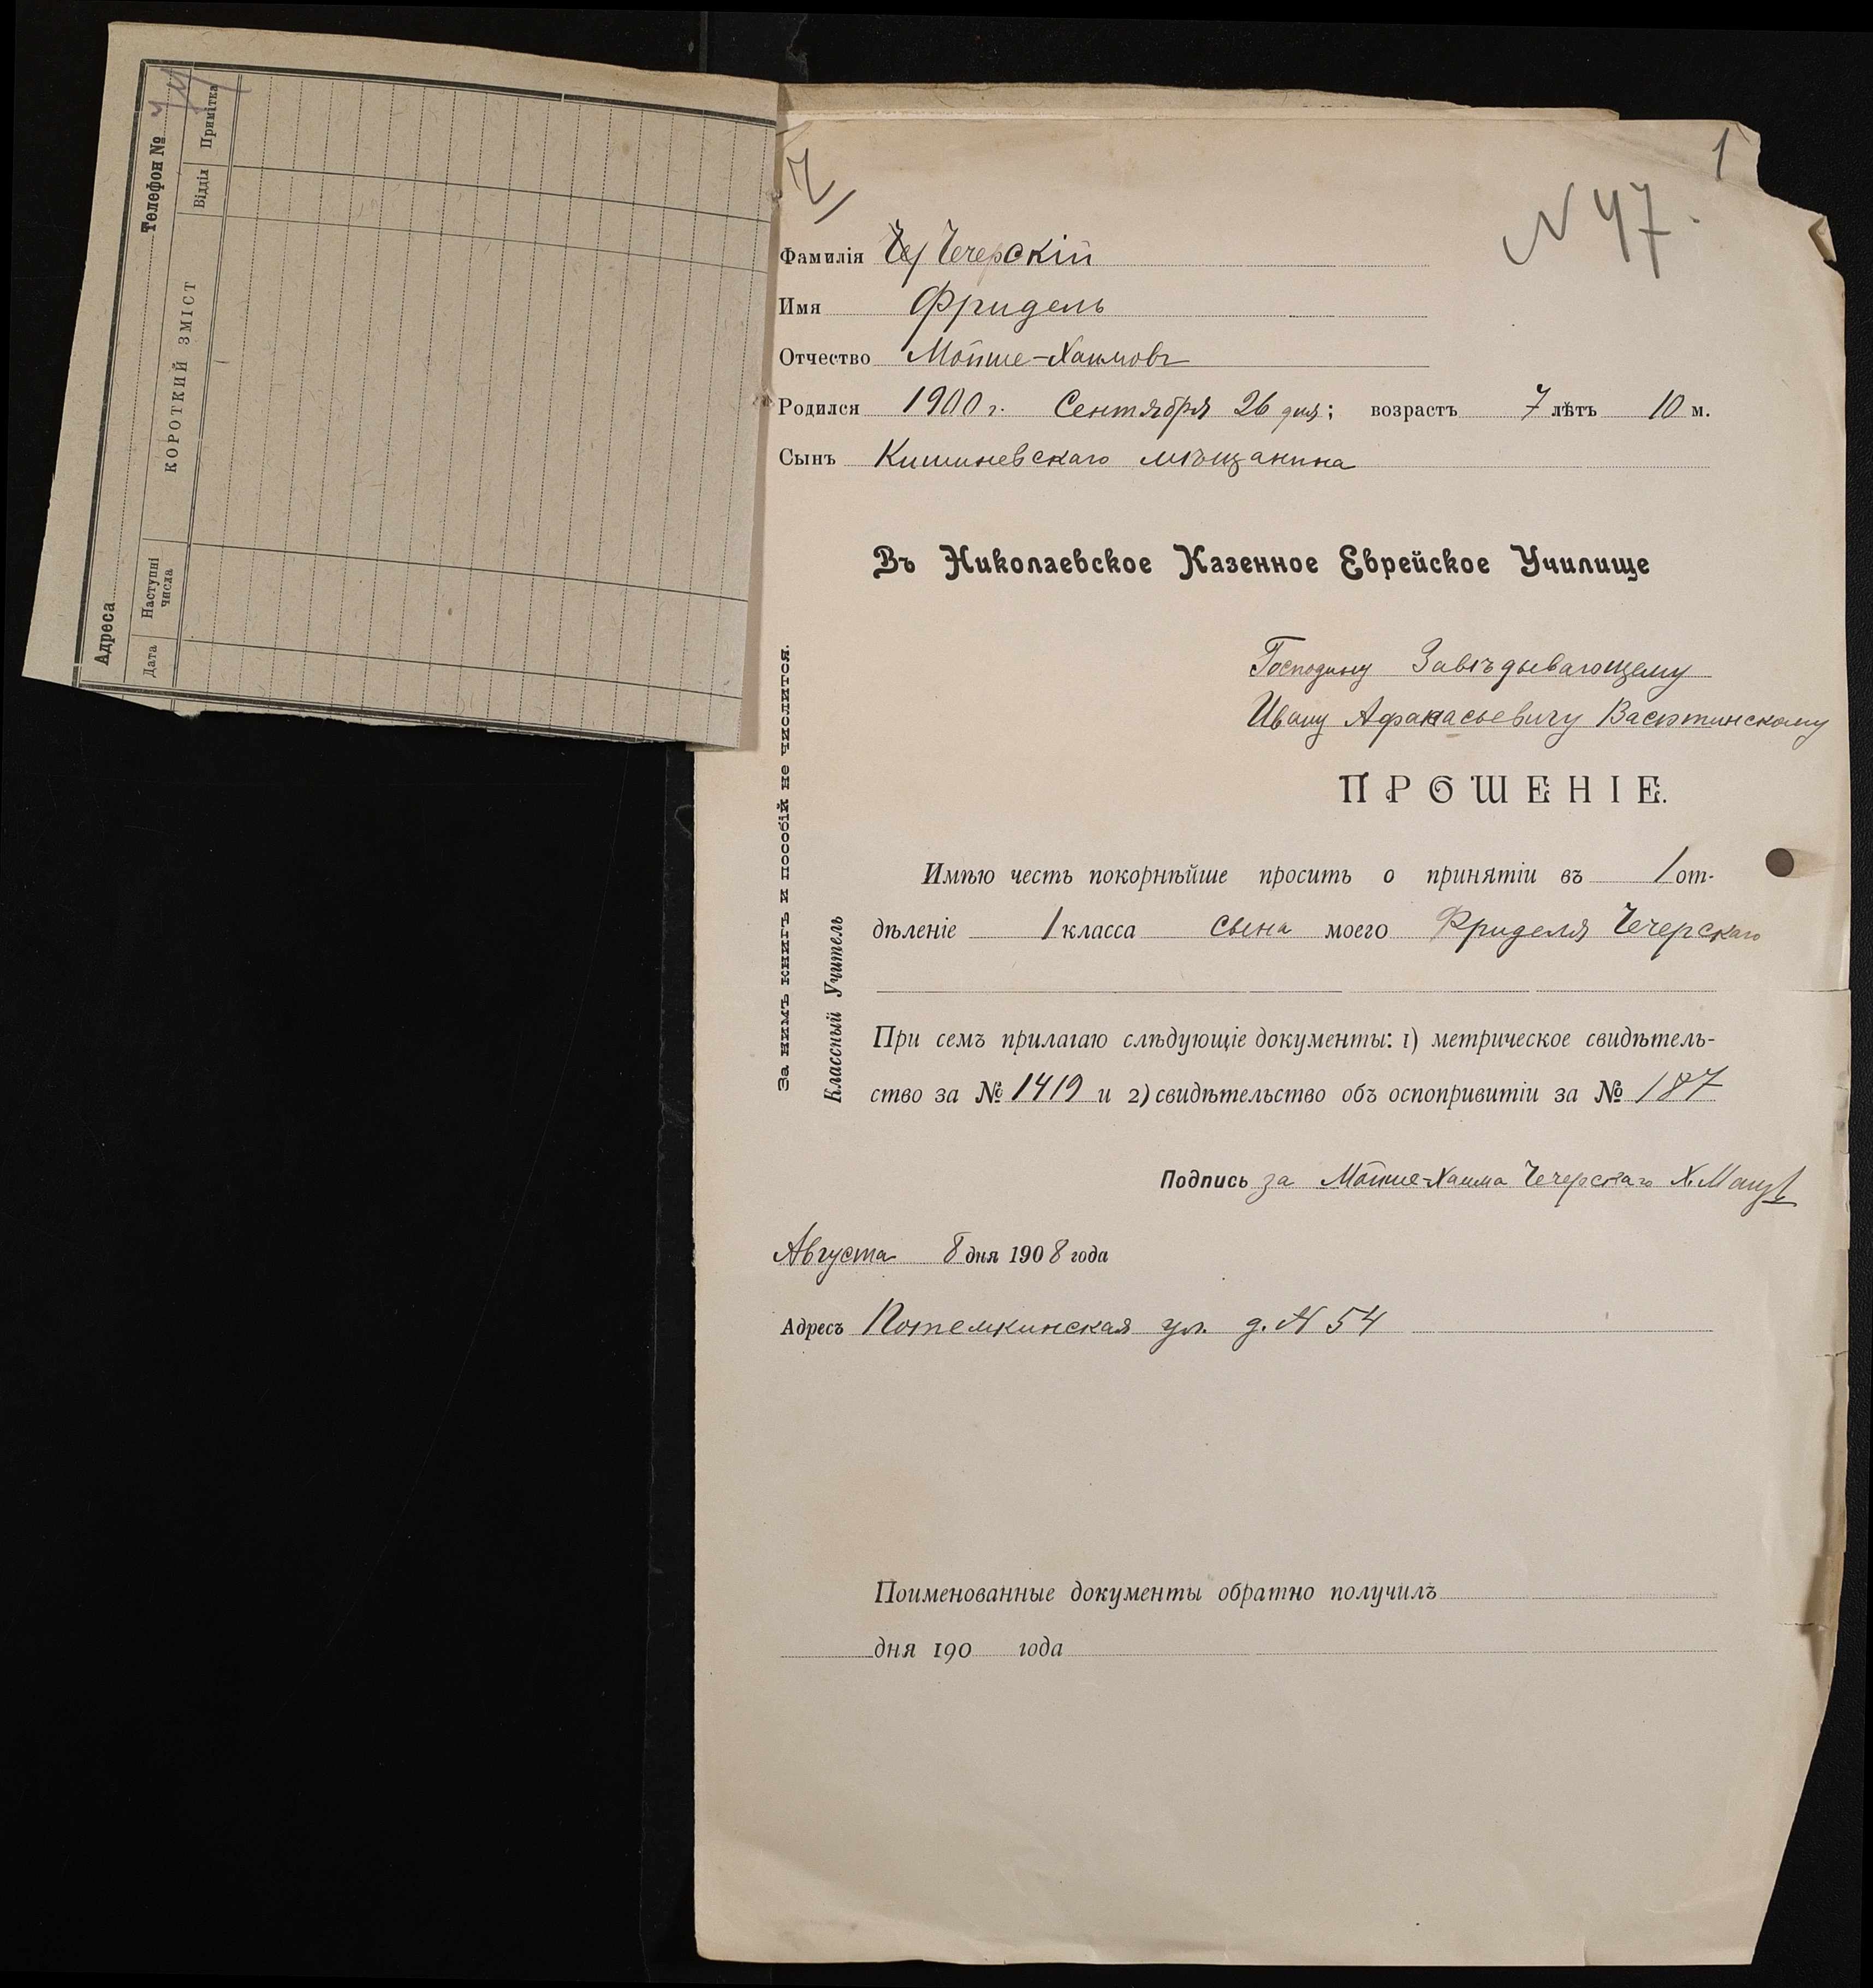 Адреса Телефон №
Дата Наступні числа КОРОТКИЙ ЗМІСТ Відділ Примітка
1
N 47.
Фамилія Чечерскій
Имя Фридель
Отчество Мойше-Хаимовъ
Родился 1900 г. Сентября 26 дня; возрастъ 7 лѣтъ 10 м.
Сынъ Кишиневскаго мѣщанина
Въ Николаевское Казенное Еврейское Училище
Господину Завѣдывающему
Ивану Афанасьевичу Васютинскому
ПРОШЕНІЕ.
Имѣю честь покорнѣйше просить о принятіи въ 1 от-
дѣленіе 1 класса сына моего Фриделя Чечерскаго
При семъ прилагаю слѣдующіе документы: 1) метрическое свидѣтель-
ство за № 1419 и 2) свидѣтельство объ оспопривитіи за № 187
Подпись за Мойше-Хаима Чечерскаго Х.
Августа 8 дня 1908 года
Адресъ Потемкинская ул. д. N 54
Поименованные документы обратно получилъ
дня 190 года
За нимъ книгъ и пособій не числится.
Классный Учитель